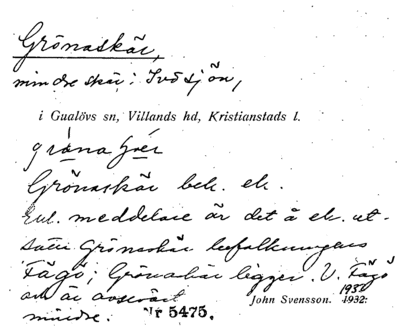 Grönaskär,
mindre skär i Ivösjön,
i Gualövs sn, Villands hd, Kristianstads l.
gròna
Grönaskär bek. ek.
Enl. meddelare är det å ek. ut-
satta Grönaskär befolkningens
Fägö; Grönaskär ligger V. Fägö
som är avsevärt
mindre.
Nr 5475.
John Svensson. 1932.
1933